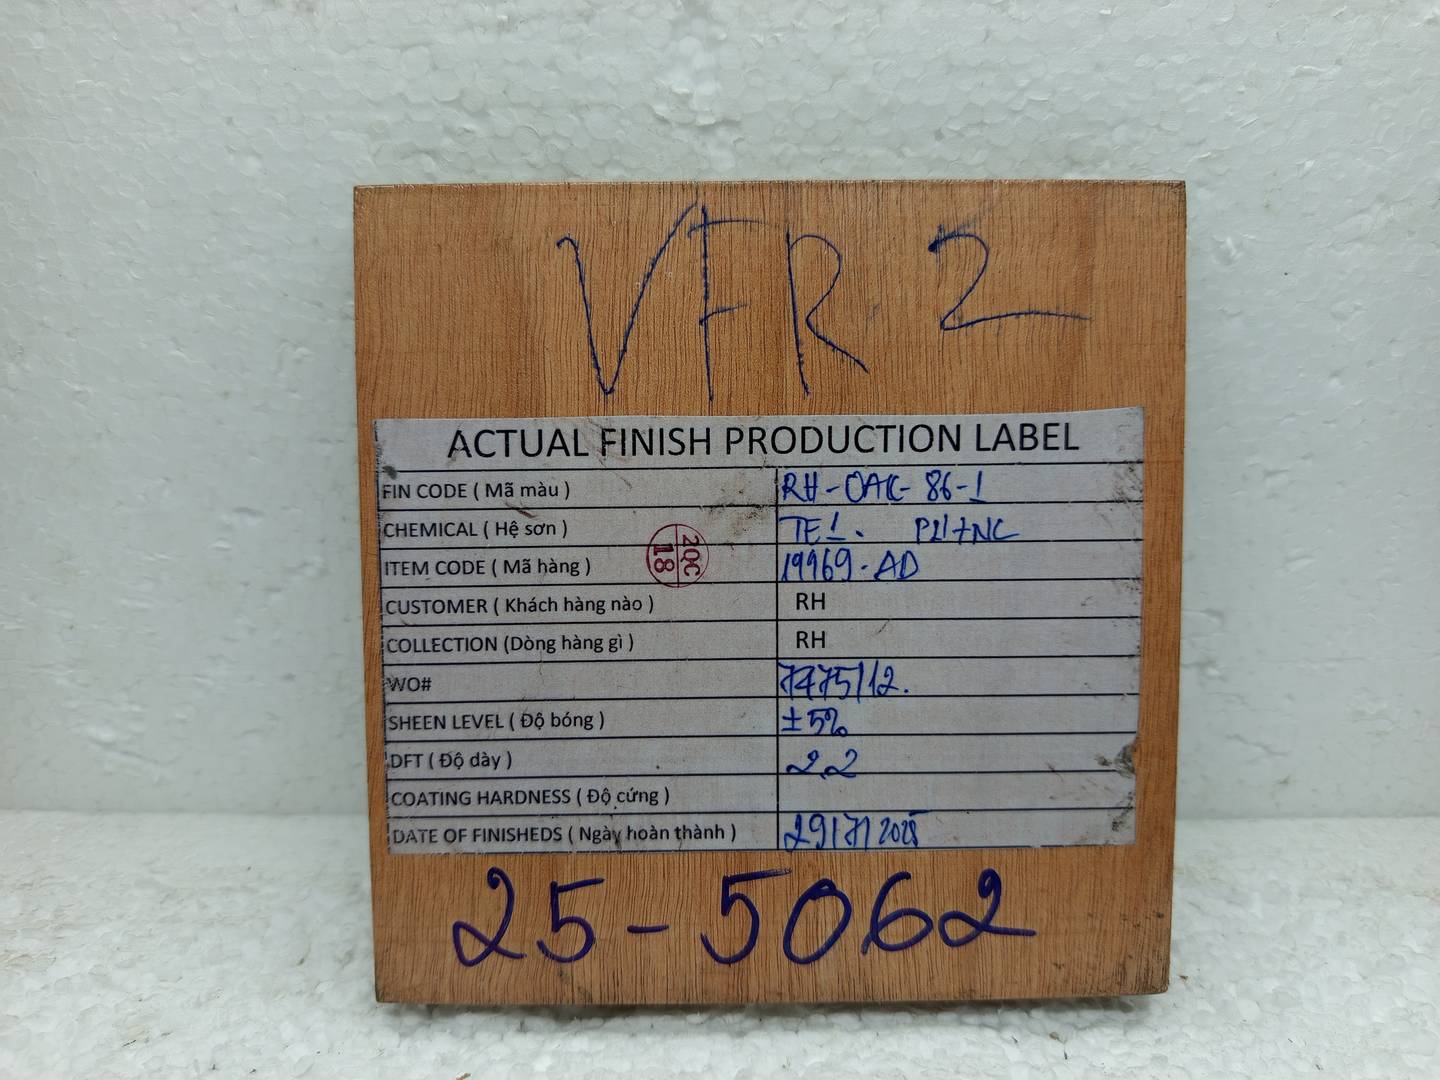 VFR 2
ACTUAL FINISH PRODUCTION LABEL
FIN CODE ( Mã màu ) RH-OAK-86-1
CHEMICAL ( Hệ sơn ) TE1. PU+NC
ITEM CODE ( Mã hàng ) 19969-AD
2QC
18
CUSTOMER ( Khách hàng nào ) RH
COLLECTION (Dòng hàng gì ) RH
WO# 7475/12.
SHEEN LEVEL ( Độ bóng ) ±5%
DFT ( Độ dày ) 2.2
COATING HARDNESS ( Độ cứng )
DATE OF FINISHEDS ( Ngày hoàn thành ) 29/7/2025
25-5062